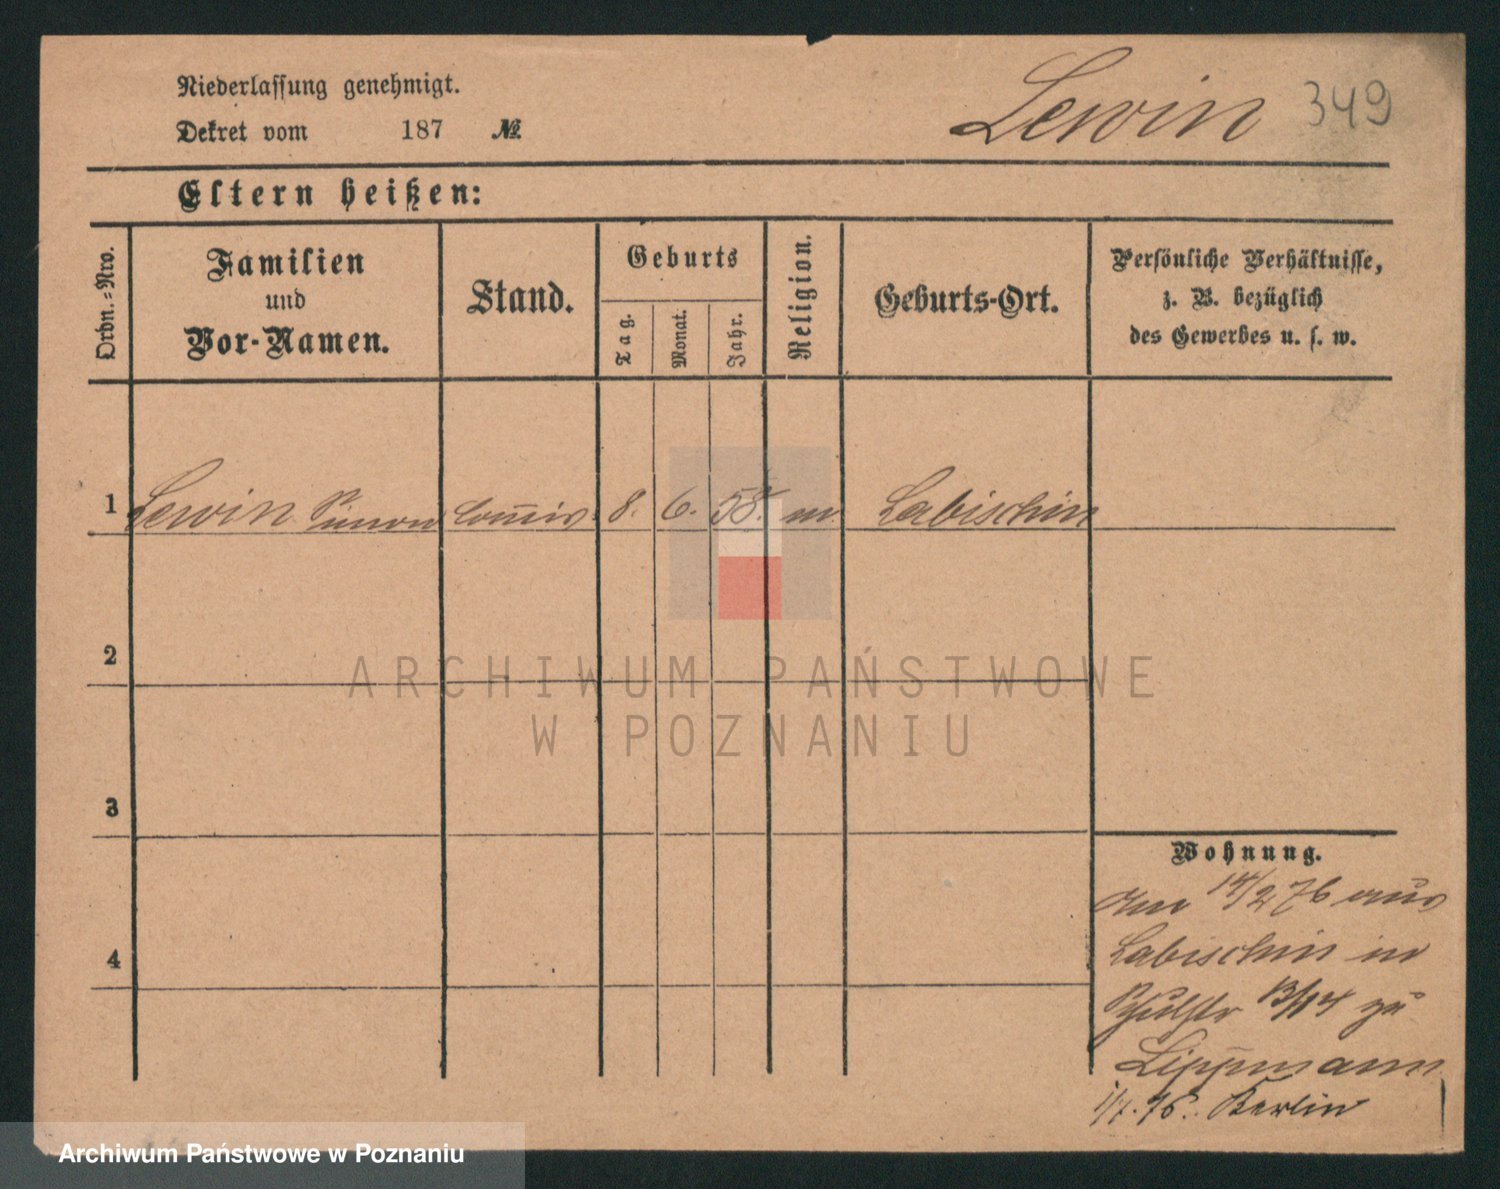 Niederlassung genehmigt.
Lewin 349
Dekret vom 187 №
Eltern heißen:
Ordn.-Nro.
Familien
und
Vor-Namen.
Stand.
Geburts
Tag.
Monat.
Jahr.
Religion.
Geburts-Ort.
Persönliche Verhältnisse,
z. B. bezüglich
des Gewerbes u. s. w.
1 Lewin Simon Commis 8. 6. 58. m Labischin
2
ARCHIWUM PAŃSTWOWE
W POZNANIU
3
Wohnung.
14/2 76 aus
4
Labischin in
Schulstr 13/14 zu
Lippmann
76. Berlin
Archiwum Państwowe w Poznaniu